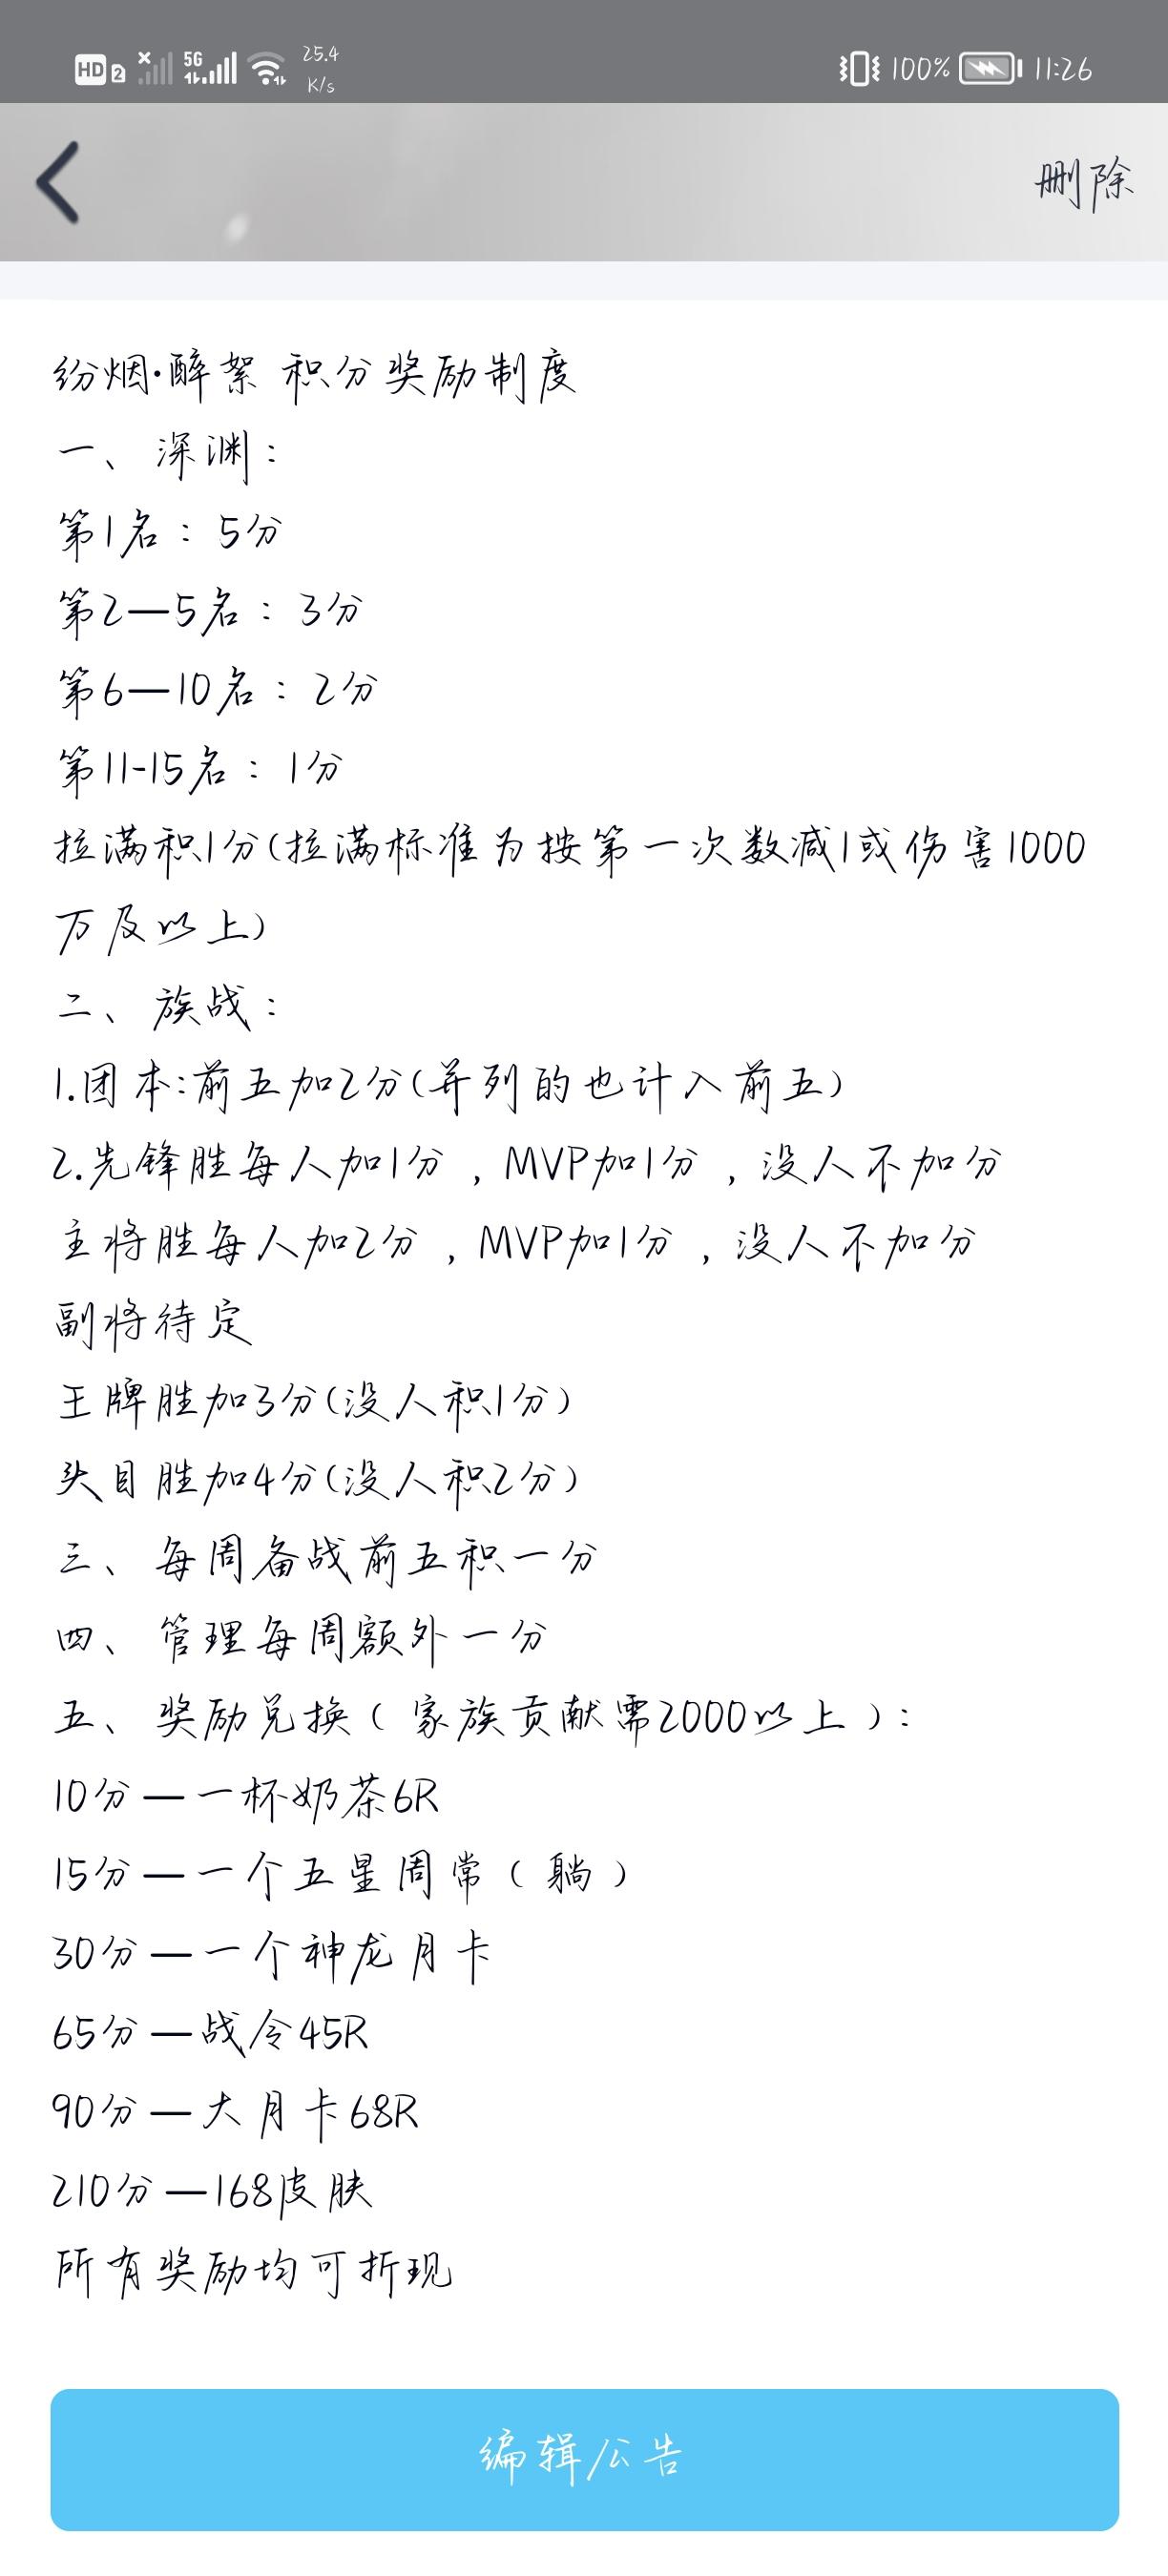 HD 2 5G 25.4 K/s 100% 11:26
删除
纷烟·醉絮 积分奖励制度
一、深渊：
第1名：5分
第2—5名：3分
第6—10名：2分
第11-15名：1分
拉满积1分(拉满标准为按第一次数减1或伤害1000
万及以上)
二、族战：
1.团本:前五加2分(并列的也计入前五)
2.先锋胜每人加1分，MVP加1分，没人不加分
主将胜每人加2分，MVP加1分，没人不加分
副将待定
王牌胜加3分(没人积1分)
头目胜加4分(没人积2分)
三、每周备战前五积一分
四、管理每周额外一分
五、奖励兑换（家族贡献需2000以上）：
10分—一杯奶茶6R
15分—一个五星周常（躺）
30分—一个神龙月卡
65分—战令45R
90分—大月卡68R
210分—168皮肤
所有奖励均可折现
编辑公告